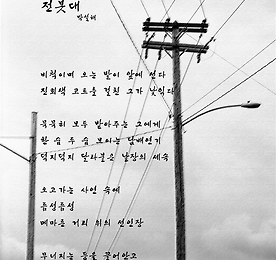 전봇대
비척이며 오는 발이 앞에 선다
진회색 코트를 걸친 그가 낯익다
묵묵히 모두 받아주는 그에게
한 숨 두 숨 보이는 담배연기
덕지덕지 달라붙은 날장의 세속
오고가는 사연 속에
듬성듬성
메마른 거리 위의 선인장
무너지는 등을 끌어안고